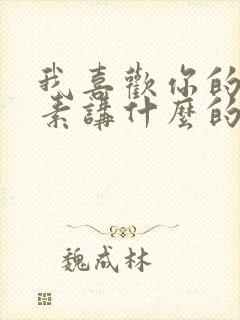 我喜歡你的
素講什麼的
魏成林